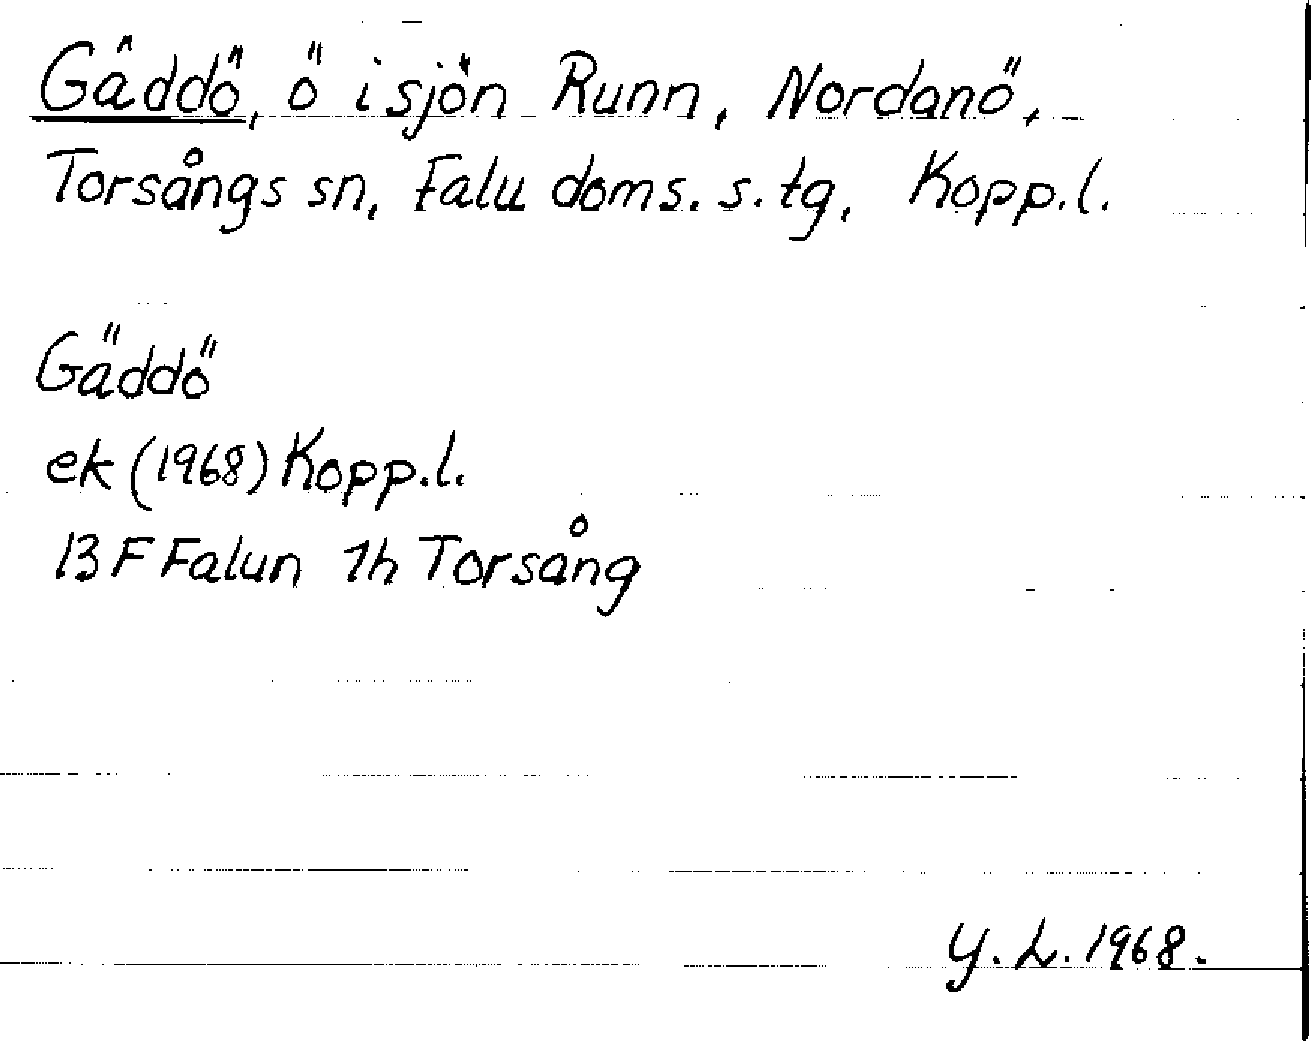 Gäddö, ö i sjön Runn, Nordanö,
Torsångs sn, Falu doms. s. tg, Kopp.l.
Gäddö
ek (1968) Kopp.l.
13 F Falun 1h Torsång
Y. L. 1968.